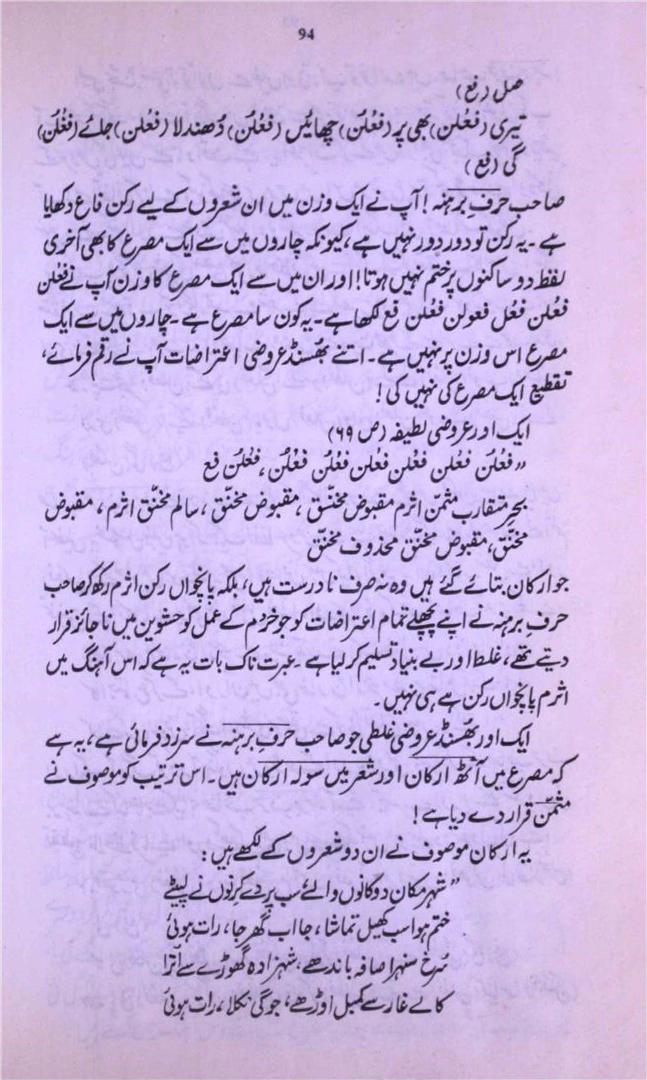 94
ھل (فع)
تیری (فعلن) بھی پر (فعلن) چھائیں (فعلن) دُھندلا (فعلن) جائے (فعلن)
گی (فع)
صاحب حرفِ برہنہ! آپ نے ایک وزن میں ان شعروں کے لیے رکن فاع دکھایا
ہے۔ یہ رکن تو دور دور نہیں ہے، کیونکہ چاروں میں سے ایک مصرع کا بھی آخری
لفظ دو ساکنوں پر ختم نہیں ہوتا! اور ان میں سے ایک مصرع کا وزن آپ نے فعلن
فعلن فعل فعولن فعلن فع لکھا ہے۔ یہ کون سا مصرع ہے۔ چاروں میں سے ایک
مصرع اس وزن پر نہیں ہے۔ اتنے بھسنڈ عروضی اعتراضات آپ نے رقم فرمائے،
تقطیع ایک مصرع کی نہیں کی!
ایک اور عروضی لطیفہ (ص ۶۹)
"فعلن فعلن فعلن فعلن فعلن فعلن، فعلن فع
بحرِ متقارب مثمن اثرم مقبوض مخنّق، مقبوض مخنّق، سالم مخنّق اثرم، مقبوض
مخنّق، مقبوض مخنّق محذوف مخنّق
جو ارکان بتائے گئے ہیں وہ نہ صرف نادرست ہیں، بلکہ پانچواں رکن اثرم رکھ کر صاحب
حرفِ برہنہ نے اپنے پچھلے تمام اعتراضات کو جو خرم کے عمل کو حشوین میں ناجائز قرار
دیتے تھے، غلط اور بے بنیاد تسلیم کر لیا ہے۔ عبرت ناک بات یہ ہے کہ اس آہنگ میں
اثرم پانچواں رکن ہے ہی نہیں۔
ایک اور بھسنڈ عروضی غلطی جو صاحب حرفِ برہنہ نے سرزد فرمائی ہے، یہ ہے
کہ مصرع میں آٹھ ارکان اور شعر میں سولہ ارکان ہیں۔ اس ترتیب کو موصوف نے
مثمن قرار دے دیا ہے!
یہ ارکان موصوف نے ان دو شعروں کے لکھے ہیں:
"شہر مکان دوکانوں والے سب پردے کرنوں نے لپیٹے
ختم ہوا سب کھیل تماشا، جا اب گھر جا، رات ہوئی
سُرخ سنہرا صافہ باندھے، شہزادہ گھوڑے سے اترا
کالے غار سے کمبل اوڑھے، جوگی نکلا، رات ہوئی